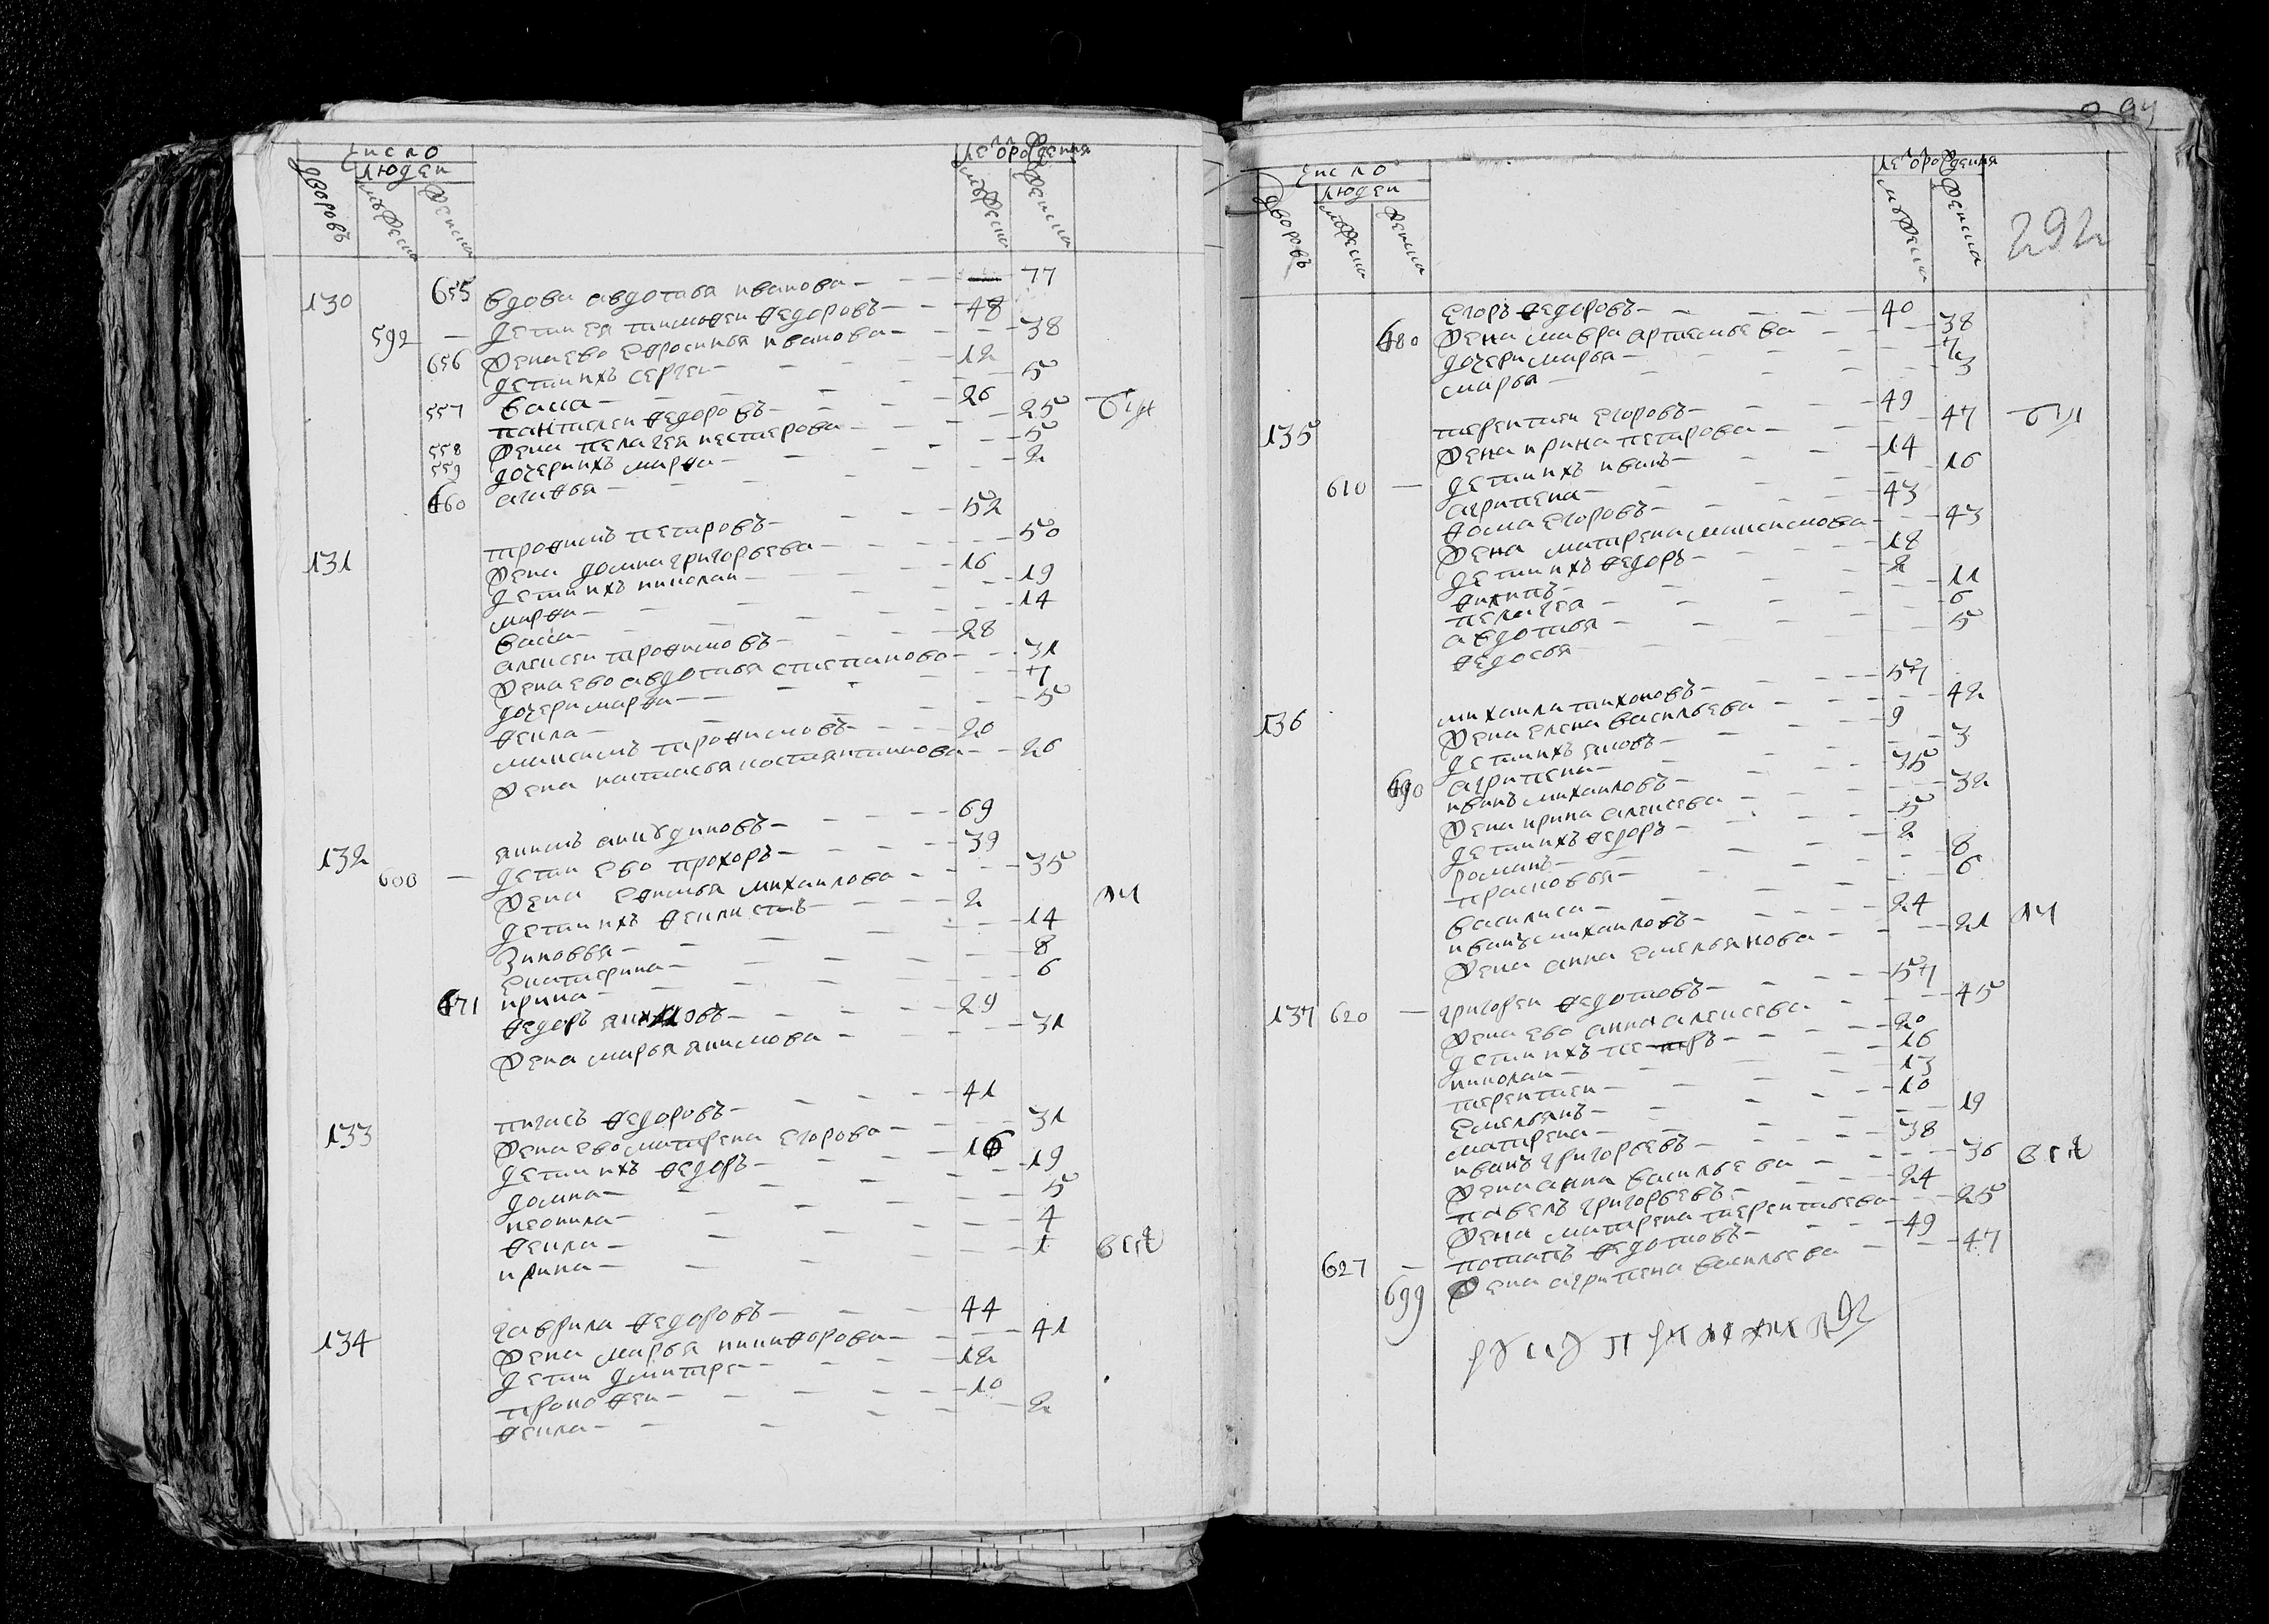 число
людей
дворовъ
мужеска
женска
летъ рождения
мужеска
женска
130
655 вдова авдотья иванова 77
592 дети ея тимофеи федоровъ 48
656 жена ево ефросинья иванова 38
дети ихъ сергеи 12
васса 5
557 пантелеи федоровъ 26
558 жена пелагея нестерова 25
559 дочери ихъ марфа 5
660 агафья 2
131
трофимъ петровъ 52
жена домна григорьева 50
дети ихъ николаи 16
марфа 19
васса 14
алексеи трофимовъ 28
жена ево авдотья степанова 31
дочери марфа 7
фекла 5
максимъ трофимовъ 20
жена настасья костянтинова 26
132
якимъ анкудиновъ 69
600 дети ево прохоръ 39
жена ефимья михаилова 35
дети ихъ феклистъ 2
зиновья 14
екатерина 8
671 ирина 6
федоръ якимовъ 29
жена марья якимова 31
133
пигасъ федоровъ 41
жена ево матрена егорова 31
дети ихъ федоръ 16
домна 19
неонила 5
фекла 4
ирина 1
134
гаврила федоровъ 44
жена марья никифорова 41
дети дмитре 12
прокофеи 10
фекла 2
292
число
людей
дворовъ
мужеска
женска
летъ рождения
мужеска
женска
егоръ федоровъ 40
680 жена мавра артемьева 38
дочери марья 7
марья 3
135
терентеи егоровъ 49
жена ирина петрова 47
610 дети ихъ иванъ 14
агрипена 16
фома егоровъ 43
жена матрена максимова 43
дети ихъ федоръ 18
филипъ 2
пелагея 11
авдотья 6
федосья 5
136
михаила тихоновъ 57
жена елена васильева 42
дети ихъ яковъ 9
690 агрипена 3
иванъ михаиловъ 35
жена ирина алексева 32
дети ихъ федоръ 5
романъ 2
прасковья 8
василиса 6
иванъ михаиловъ 24
жена анна емельянова 21
137 620 григореи федотовъ 57
жена ево анна алексева 45
дети ихъ петръ 20
николаи 16
терентеи 13
емельянъ 10
матрена 19
иванъ григорьевъ 38
жена анна васильева 36
павелъ григорьевъ 24
жена матрена терентьева 25
627 потапъ федотовъ 49
699 жена агрипена васильева 47